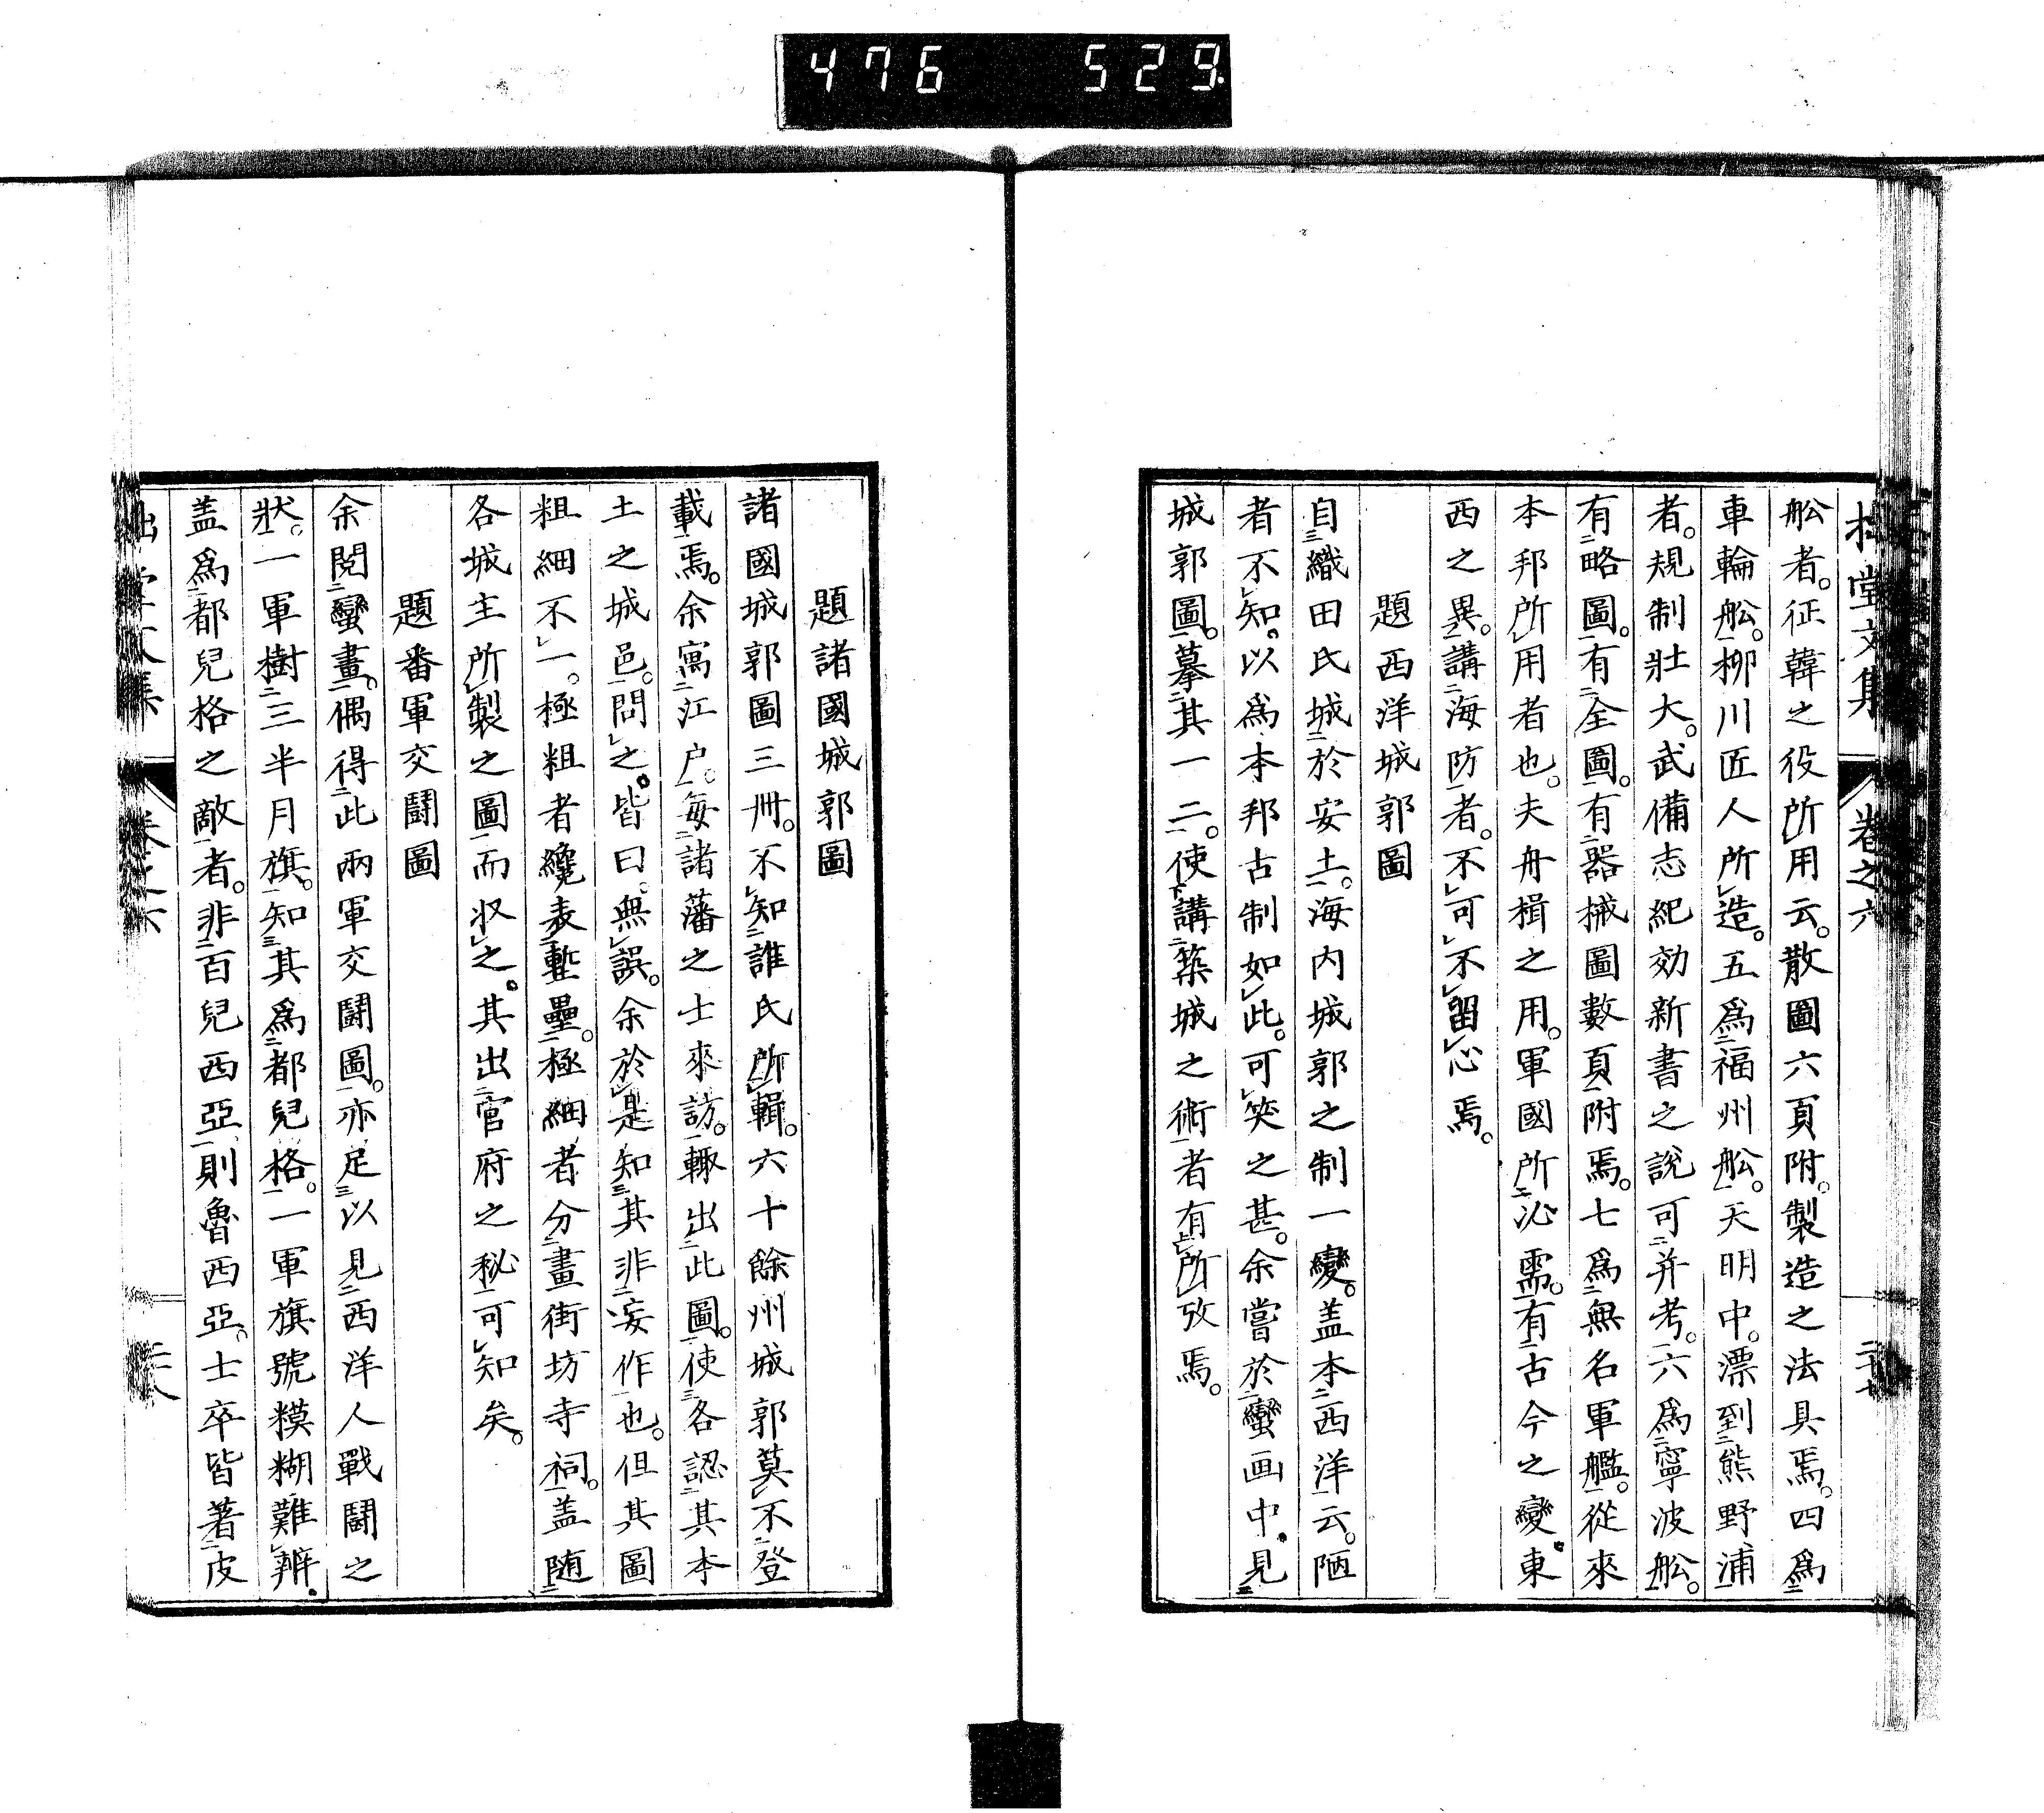 476 529
拙堂文集 卷之六
舩者。征韓之役所用云。散圖六頁附。製造之法具焉。四爲
車輪舩。柳川匠人所造。五爲福州舩。天明中。漂到熊野浦
者。規制壯大。武備志紀効新書之說可并考。六爲寧波舩。
有略圖。有全圖。有器械圖數頁附焉。七爲無名軍艦。從來
本邦所用者也。夫舟楫之用。軍國所必需。有古今之變。東
西之異。講海防者。不可不留心焉。
題西洋城郭圖
自織田氏城於安土。海内城郭之制一變。盖本西洋云。陋
者不知。以爲本邦古制如此。可笑之甚。余嘗於蠻画中。見
城郭圖。摹其一二。使講築城之術者有所攷焉。
題諸國城郭圖
諸國城郭圖三冊。不知誰氏所輯。六十餘州城郭莫不登
載焉。余寓江户。每諸藩之士來訪。輙出此圖。使各認其本
土之城邑。問之。皆曰。無誤。余於是知其非妄作也。但其圖
粗細不一。極粗者纔表塹壘。極細者分畫街坊寺祠。盖随
各城主所製之圖而収之。其出官府之秘可知矣。
題番軍交鬪圖
余閱蠻畫。偶得此兩軍交鬪圖。亦足以見西洋人戰鬪之
狀。一軍樹三半月旗。知其爲都兒格。一軍旗號糢糊難辨。
盖爲都兒格之敵者。非百兒西亞則魯西亞。士卒皆著皮